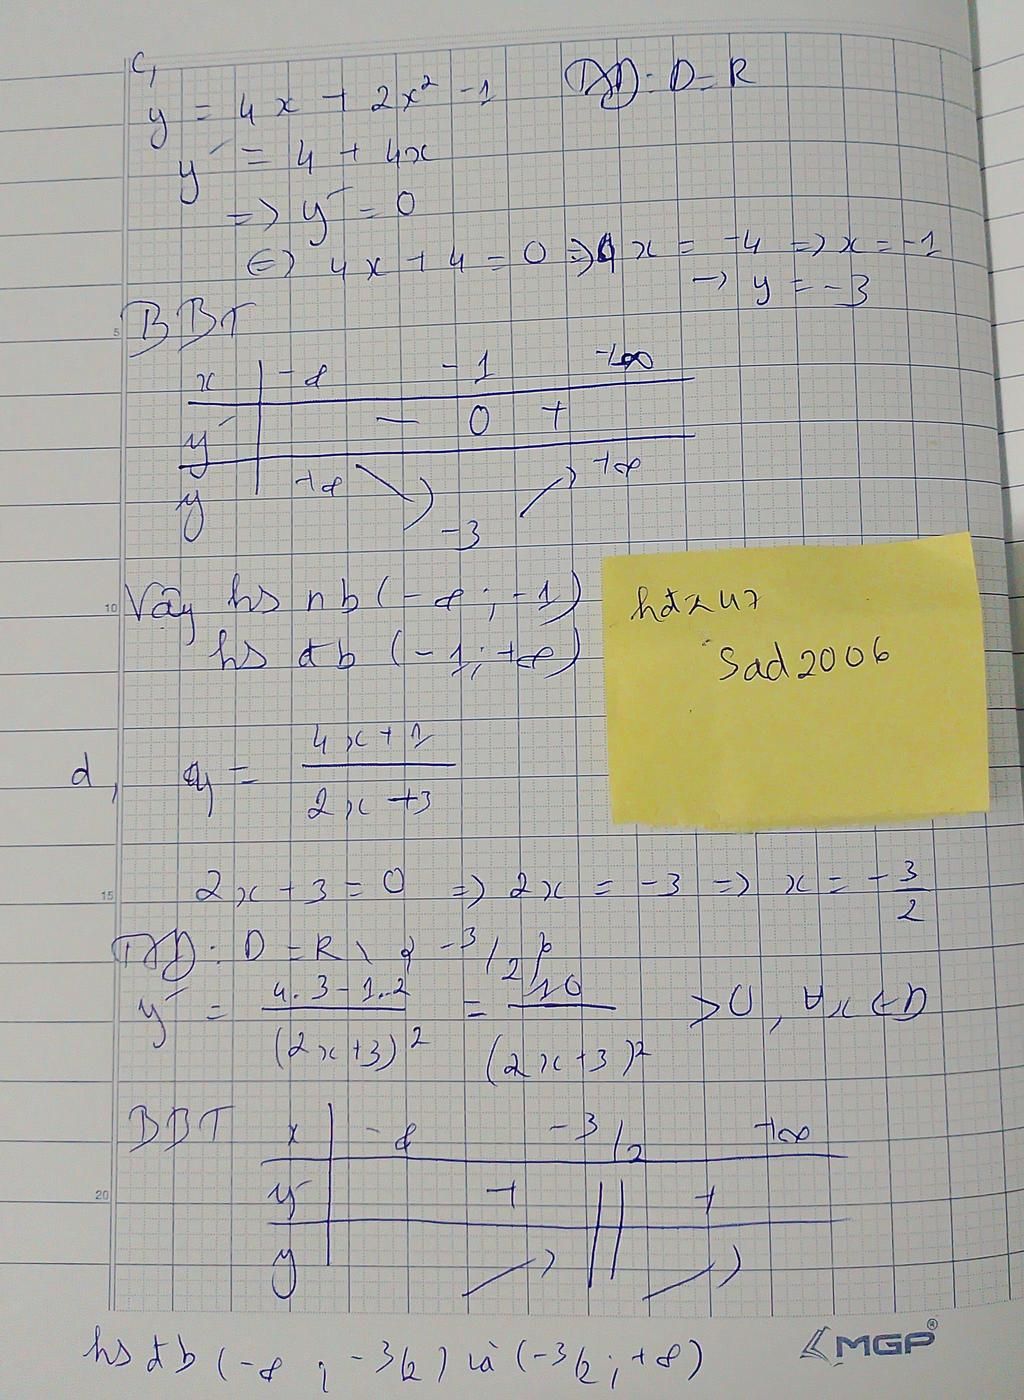 c,
y = 4x + 2x² -1 TXĐ: D = R
y' = 4 + 4x
=> y' = 0
<=> 4x + 4 = 0 => 4x = -4 => x = -1
-> y = -3
BBT
x -∞ -1 +∞
y' - 0 +
y +∞ -3 +∞
Vậy hs nb (-∞ ; -1)
hs đb (-1; +∞)
Sad2006
d, y = (4x+1)/(2x+3)
2x + 3 = 0 => 2x = -3 => x = -3/2
TXĐ: D = R \ { -3/2 }
y' = (4.3-1.2)/(2x+3)² = 10/(2x+3)² > 0, ∀x ∈ D
BBT x -∞ -3/2 +∞
y' + || +
y
hs đb (-∞ ; -3/2) và (-3/2 ; +∞)
MGP®
5
10
15
20